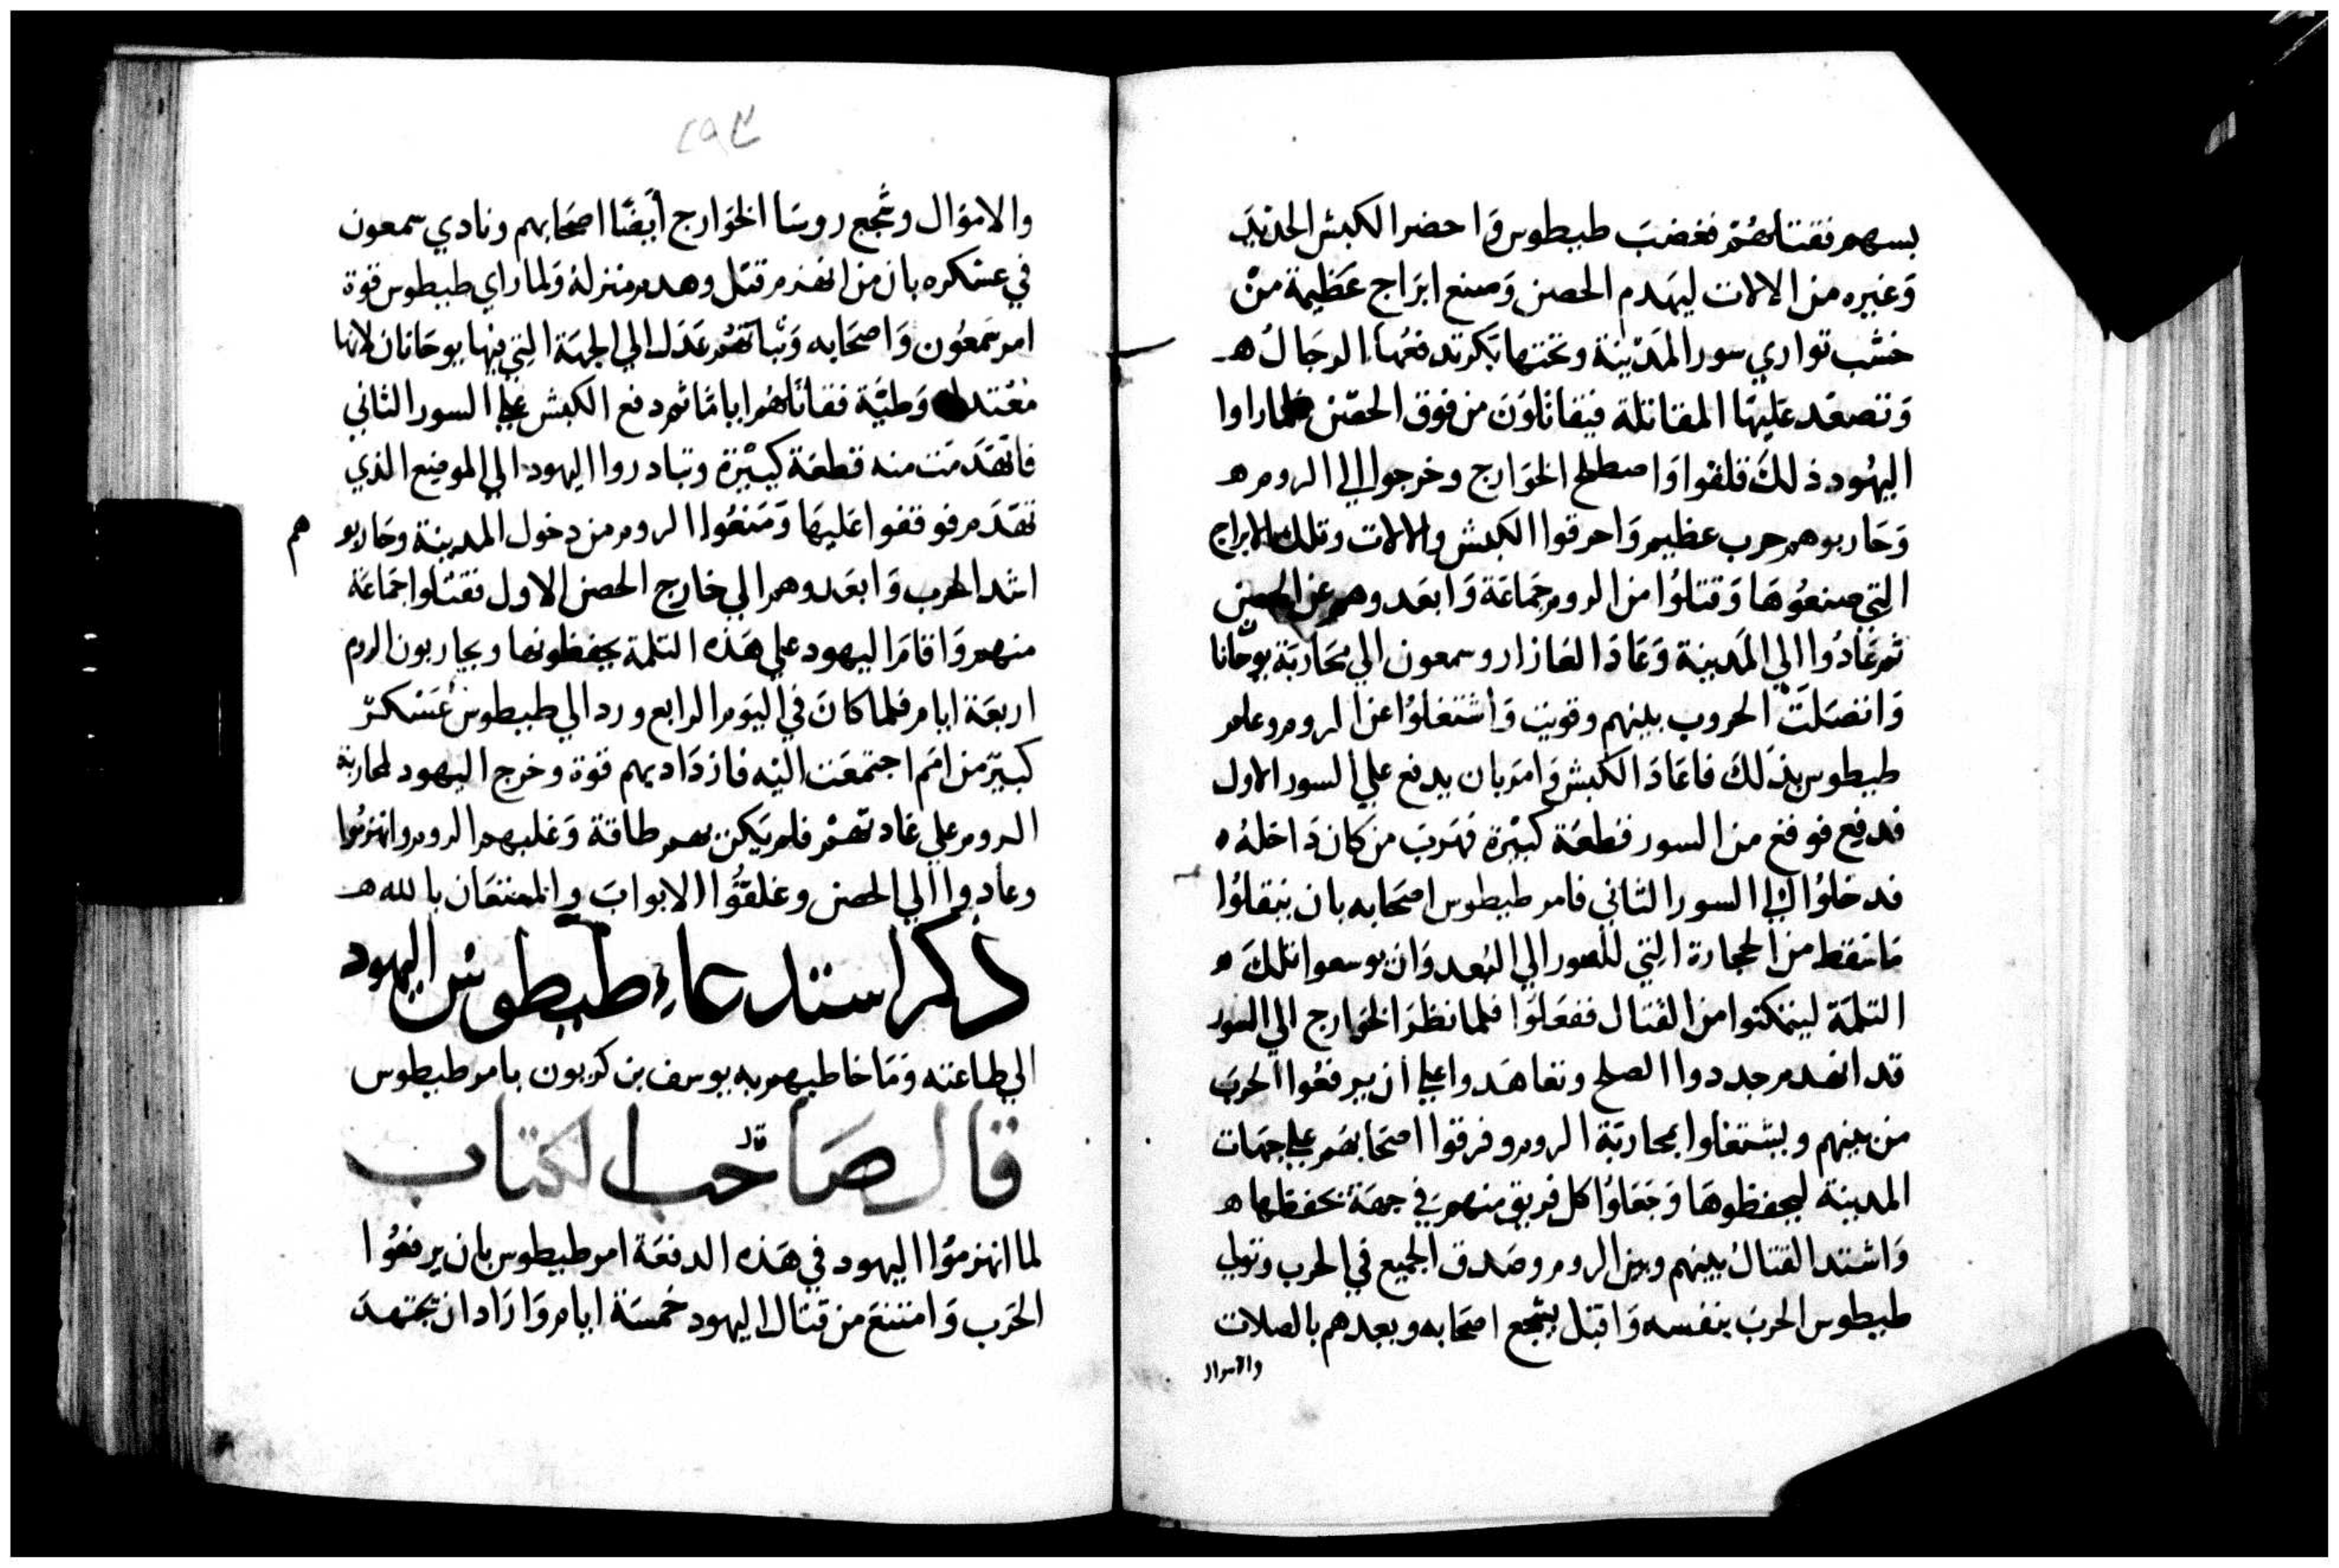 بسهم فقتلهم فغضب طيطوس واحضر الكبش الحديد
وغيره من الالات ليهدم الحصن وصنع ابراج عظيمة من
خشب توازي سور المدينة وتحتها بكر تدفعها الرجال ه
وتصعد عليها المقاتلة فيقاتلون من فوق الحصن فلما راوا
اليهود ذلك قلقوا واصطلح الخوارج وخرجوا الي الروم ه
وحاربوهم حرب عظيم واحرقوا الكبش والالات وتلك الابراج
التي صنعوها وقتلوا من الروم جماعة وابعدوهم عن الحصن
ثم عادوا الي المدينة وعاد العازار وسمعون الي محاربة يوحانا
واتصلت الحروب بينهم وقويت واشتغلوا عن الروم وعلم
طيطوس بذلك فاعاد الكبش وامر بان يدفع علي السور الاول
فدفع فوقع من السور قطعة كبيرة فهرب من كان داخله ه
فدخلوا الي السور الثاني فامر طيطوس اصحابه بان ينقلوا
ما سقط من الحجارة التي للسور الي البعد وان يوسعوا تلك ه
الثلمة ليتمكنوا من القتال ففعلوا فلما نظر الخوارج الي السور
قد انهدم جددوا الصلح وتعاهدوا علي ان يرفعوا الحرب
من بينهم ويشتغلوا بمحاربة الروم وفرقوا اصحابهم علي جهات
المدينة ليحفظوها وجعلوا كل فريق منهم في جهة يحفظها ه
واشتد القتال بينهم وبين الروم وصدق الجميع في الحرب وتولي
طيطوس الحرب بنفسه واقبل يشجع اصحابه ويعدهم بالصلات
والاموال
٢٩٣
والاموال وشجع روسا الخوارج أيضًا اصحابهم ونادي سمعون
في عسكره بان من انهزم قتل وهدم منزله ولما راي طيطوس قوة
امر سمعون واصحابه وثباتهم عدل الي الجهة التي فيها يوحانان لانها
معتدلة وطيّة فقاتلهم اياما ثم دفع الكبش علي السور الثاني
فانهدمت منه قطعة كبيرة وتبادروا اليهود الي الموضع الذي
تهدم فوقفوا عليها ومنعوا الروم من دخول المدينة وحاربو هم
اشد الحرب وابعدوهم الي خارج الحصن الاول فقتلوا جماعة
منهم واقام اليهود علي هذه الثلمة يحفظونها ويحاربون الروم
اربعة ايام فلما كان في اليوم الرابع ورد الي طيطوس عسكر
كبير من امم اجتمعت اليه فازداد بهم قوة وخرج اليهود لمحاربة
الروم علي عادتهم فلم يكن لهم طاقة وغلبهم الروم وانهزموا
وعادوا الي الحصن وغلقوا الابواب والمستعان بالله ه
ذكر استدعاء طيطوس اليهود
الي طاعته وما خاطبهم به يوسف بن كربون بامر طيطوس
قال صاحب الكتاب
لما انهزموا اليهود في هذه الدفعة امر طيطوس بان يرفعوا
الحرب وامتنع من قتال اليهود خمسة ايام واراد ان يجتهد